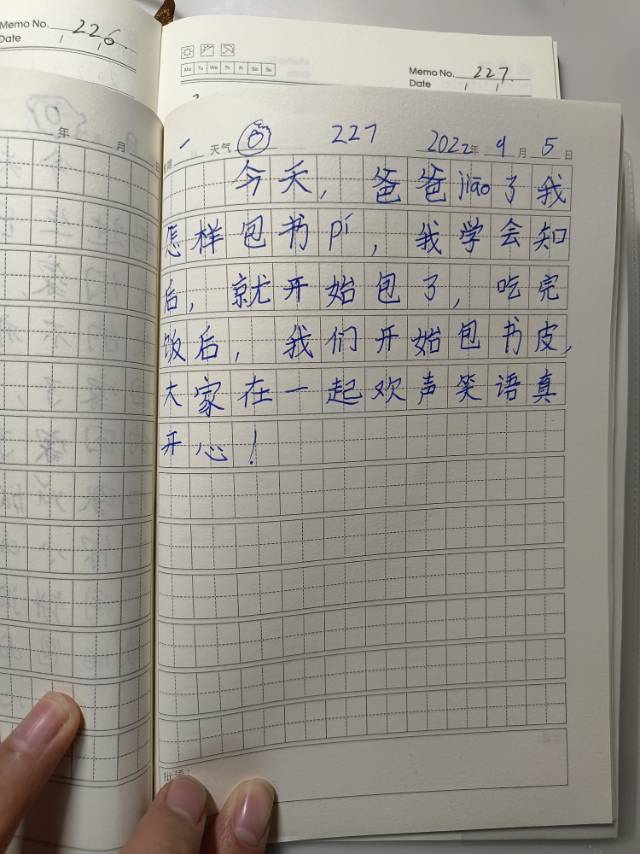 Memo No. 226
Date
Mo Tu We Th Fr Sa Su
Memo No. 227
Date
年 月
一 天气 227 2022年 9月 5日
今天，爸爸jiāo了我
怎样包书pí，我学会知
后，就开始包了，吃完
饭后，我们开始包书皮，
大家在一起欢声笑语真
开心！
批语：